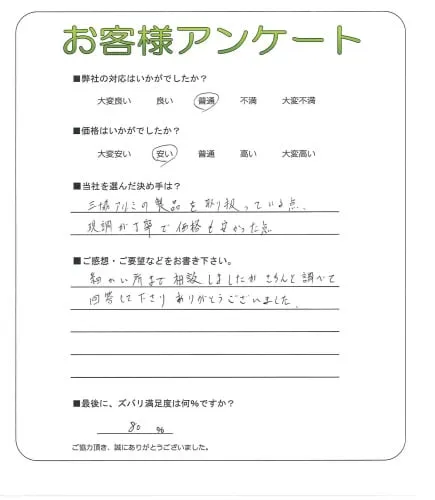 お客様アンケート
■弊社の対応はいかがでしたか?
大変良い 良い 普通 不満 大変不満
■価格はいかがでしたか?
大変安い 安い 普通 高い 大変高い
■当社を選んだ決め手は?
三協アルミの製品を取り扱っている点、
現調が丁寧で価格も安かった点
■ご感想・ご要望などをお書き下さい。
細かい所まで相談しましたが きちんと調べて
回答して下さり ありがとうございました。
■最後に、ズバリ満足度は何%ですか?
80 %
ご協力頂き、誠にありがとうございました。